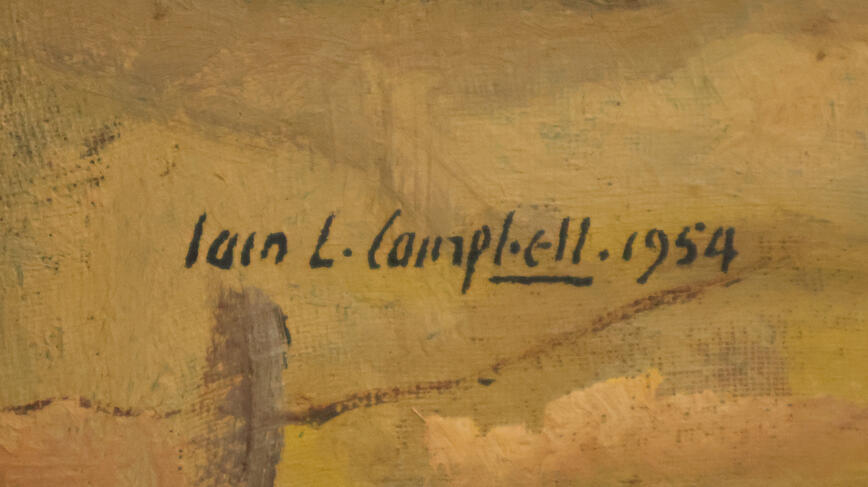 Iain L. Campbell. 1954